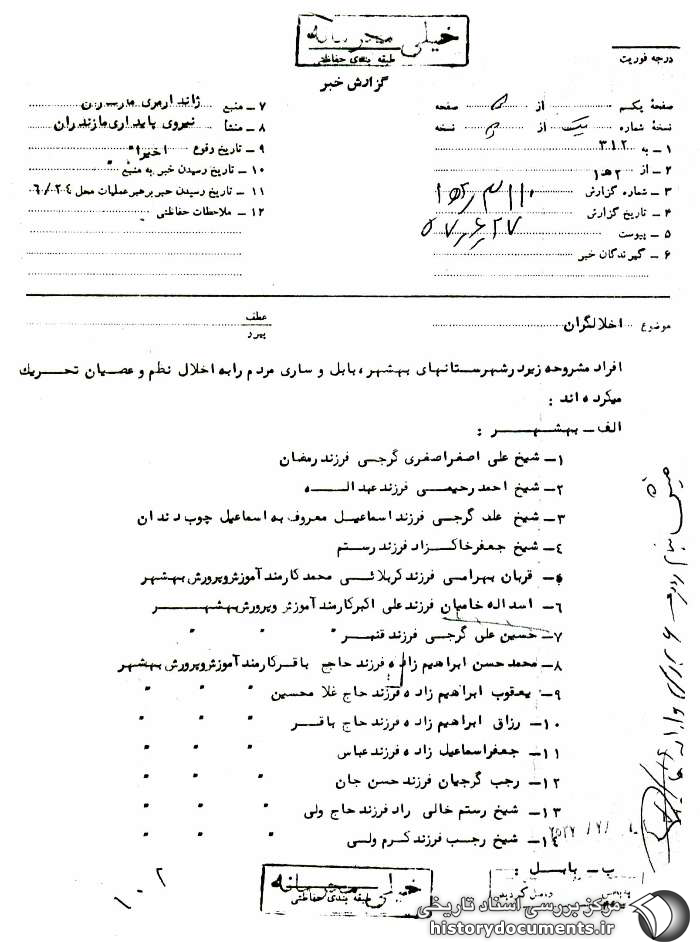 خیلی محرمانه
طبقه بندی حفاظتی
درجه فوریت
گزارش خبر
صفحهٔ یکم از صفحه
نسخهٔ شماره یک از نسخه
۱ ـ به ۳۱۲
۲ ـ از ۲ ه‍ ۱
۳ ـ شماره گزارش
۴ ـ تاریخ گزارش ۵۷٫۶٫۲۷
۵ ـ پیوست
۶ ـ گیرندگان خبر
۷ ـ منبع ژاندارمری مازندران
۸ ـ منشأ نیروی پایداری مازندران
۹ ـ تاریخ وقوع اخیرا"
۱۰ ـ تاریخ رسیدن خبر به منبع "
۱۱ ـ تاریخ رسیدن خبر برهبر عملیات محل ۶/۲۴
۱۲ ـ ملاحظات حفاظتی
موضوع اخلالگران
عطف
پیرو
افراد مشروحه زیر در شهرستانهای بهشهر ، بابل و ساری مردم را به اخلال نظم و عصیان تحریک
میکرده اند :
الف ـ بهشهر :
۱ـ شیخ علی اصغر اصغری گرجی فرزند رمضان
۲ـ شیخ احمد رحیمی فرزند عبداله
۳ـ شیخ علی گرجی فرزند اسماعیل معروف به اسماعیل چوب دندان
۴ـ شیخ جعفر خاکزاد فرزند رستم
۵ـ قربان بهرامی فرزند کربلائی محمد کارمند آموزش و پرورش بهشهر
۶ـ اسداله خامیان فرزند علی اکبر کارمند آموزش و پرورش بهشهر
۷ـ حسین علی گرجی فرزند قنبر " " "
۸ـ محمد حسن ابراهیم زاده فرزند حاجی باقر کارمند آموزش و پرورش بهشهر
۹ـ یعقوب ابراهیم زاده فرزند حاج غلامحسین " " "
۱۰ـ رزاق ابراهیم زاده فرزند حاج باقر " " "
۱۱ـ جعفر اسماعیل زاده فرزند عباس " " "
۱۲ـ رجب گرجیان فرزند حسن جان " " "
۱۳ـ شیخ رستم خالی راد فرزند حاج ولی " " "
۱۴ـ شیخ رجب فرزند کرم ولی " " "
ب ـ بابل :
خیلی محرمانه
طبقه بندی حفاظتی
۱۰۲
مرکز بررسی اسناد تاریخی
historydocuments.ir